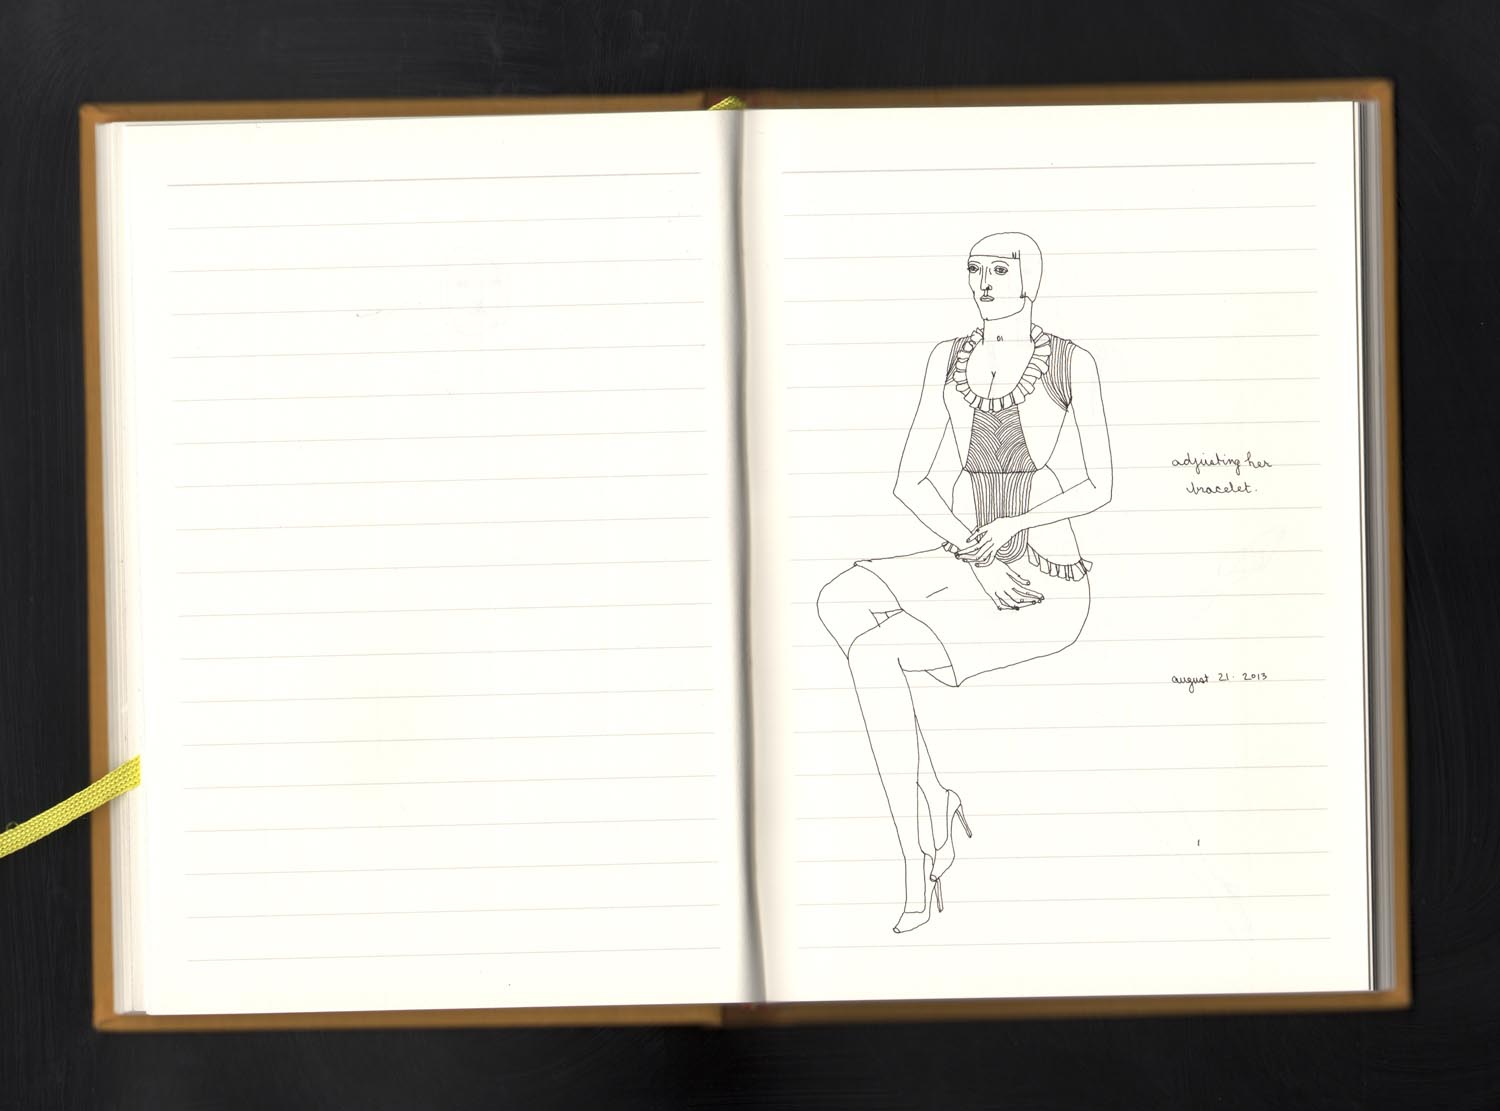 adjusting her
bracelet.
august 21. 2013